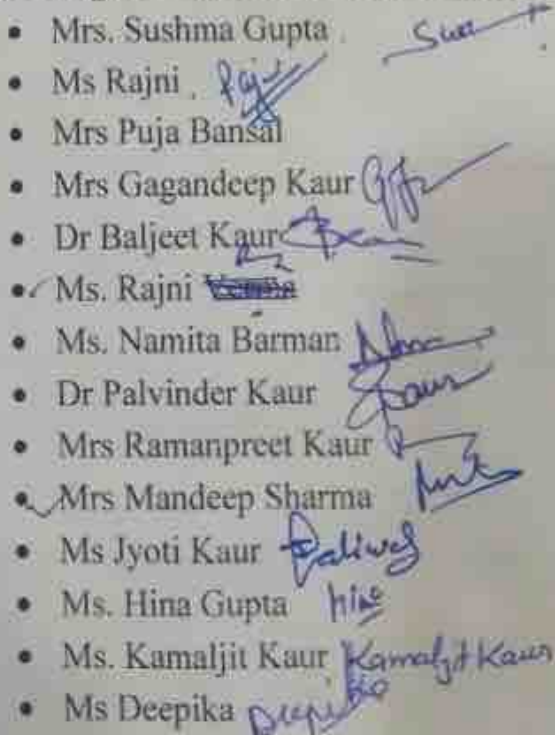 • Mrs. Sushma Gupta
• Ms Rajni
• Mrs Puja Bansal
• Mrs Gagandeep Kaur
• Dr Baljeet Kaur
• Ms. Rajni
• Ms. Namita Barman
• Dr Palvinder Kaur Kaur
• Mrs Ramanpreet Kaur
• Mrs Mandeep Sharma
• Ms Jyoti Kaur
• Ms. Hina Gupta hina
• Ms. Kamaljit Kaur Kamaljit Kaur
• Ms Deepika Deepika